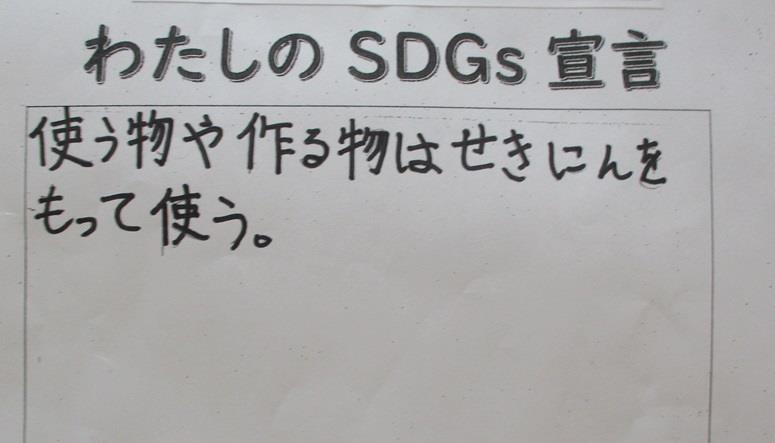 わたしの SDGs 宣言
使う物や作る物はせきにんを
もって使う。